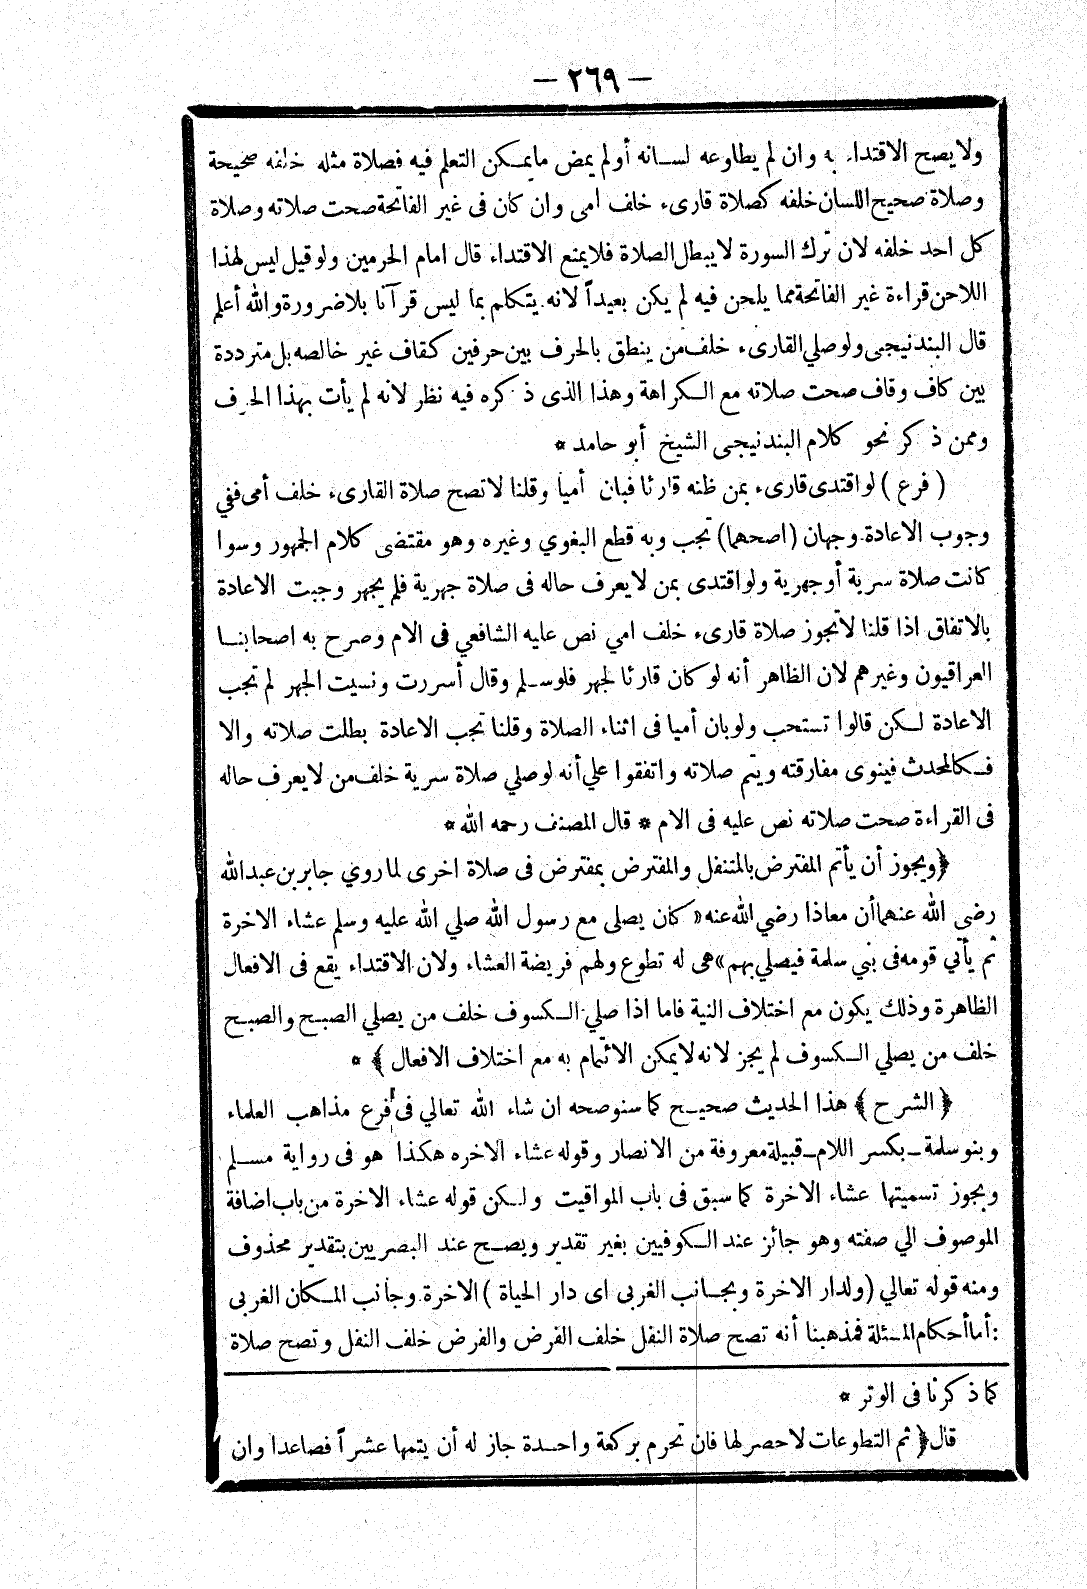 — ٢٦٩ —
ولا يصح الاقتداء به وان لم يطاوعه لسانه أو لم يمض ما يمكن التعلم فيه فصلاة مثله خلفه صحيحة
وصلاة صحيح اللسان خلفه كصلاة قارىء خلف امى وان كان فى غير الفاتحة صحت صلاته وصلاة
كل احد خلفه لان ترك السورة لا يبطل الصلاة فلا يمنع الاقتداء قال امام الحرمين ولو قيل ليس لهذا
اللاحن قراءة غير الفاتحة مما يلحن فيه لم يكن بعيداً لانه يتكلم بما ليس قرآنا بلا ضرورة والله أعلم
قال البندنيجى ولو صلي القارىء خلف من ينطق بالحرف بين حرفين كقاف غير خالصه بل مترددة
بين كاف وقاف صحت صلاته مع الكراهة وهذا الذى ذكره فيه نظر لانه لم يأت بهذا الحرف
وممن ذكر نحو كلام البندنيجى الشيخ أبو حامد *
( فرع ) لو اقتدى قارىء بمن ظنه قارئا فبان أميا وقلنا لا تصح صلاة القارىء خلف أمى ففي
وجوب الاعادة وجهان (اصحهما) تجب وبه قطع البغوي وغيره وهو مقتضى كلام الجمهور وسوا
كانت صلاة سرية أو جهرية ولو اقتدى بمن لا يعرف حاله فى صلاة جهرية فلم يجهر وجبت الاعادة
بالاتفاق اذا قلنا لا تجوز صلاة قارىء خلف امي نص عليه الشافعي فى الام وصرح به اصحابنا
العراقيون وغيرهم لان الظاهر أنه لو كان قارئا لجهر فلو سلم وقال أسررت ونسيت الجهر لم تجب
الاعادة لكن قالوا تستحب ولو بان أميا فى اثناء الصلاة وقلنا تجب الاعادة بطلت صلاته والا
فكالمحدث فينوى مفارقته ويتم صلاته واتفقوا علي أنه لو صلي صلاة سرية خلف من لا يعرف حاله
فى القراءة صحت صلاته نص عليه فى الام * قال المصنف رحمه الله *
﴿ويجوز أن يأتم المفترض بالمتنفل والمفترض بمفترض فى صلاة اخرى لما روي جابر بن عبد الله
رضى الله عنهما أن معاذا رضي الله عنه «كان يصلى مع رسول الله صلي الله عليه وسلم عشاء الاخرة
ثم يأتي قومه فى بني سلمة فيصلي بهم» هى له تطوع ولهم فريضة العشاء ولان الاقتداء يقع فى الافعال
الظاهرة وذلك يكون مع اختلاف النية فاما اذا صلي الكسوف خلف من يصلي الصبح والصبح
خلف من يصلي الكسوف لم يجز لانه لا يمكن الائتمام به مع اختلاف الافعال ﴾ *
﴿ الشرح ﴾ هذا الحديث صحيح كما سنوضحه ان شاء الله تعالي فى فرع مذاهب العلماء
وبنو سلمة ـ بكسر اللام ـ قبيلة معروفة من الانصار وقوله عشاء الاخره هكذا هو فى رواية مسلم
ويجوز تسميتها عشاء الاخرة كما سبق فى باب المواقيت ولكن قوله عشاء الاخرة من باب اضافة
الموصوف الي صفته وهو جائز عند الكوفيين بغير تقدير ويصح عند البصريين بتقدير محذوف
ومنه قوله تعالي (ولدار الاخرة وبجانب الغربى اى دار الحياة ) الاخرة وجانب المكان الغربى
:أما أحكام المسئلة فمذهبنا أنه تصح صلاة النفل خلف الفرض والفرض خلف النفل وتصح صلاة
كما ذكرنا فى الوتر *
قال ﴿ ثم التطوعات لا حصر لها فان تحرم بركعة واحدة جاز له أن يتمها عشراً فصاعدا وان